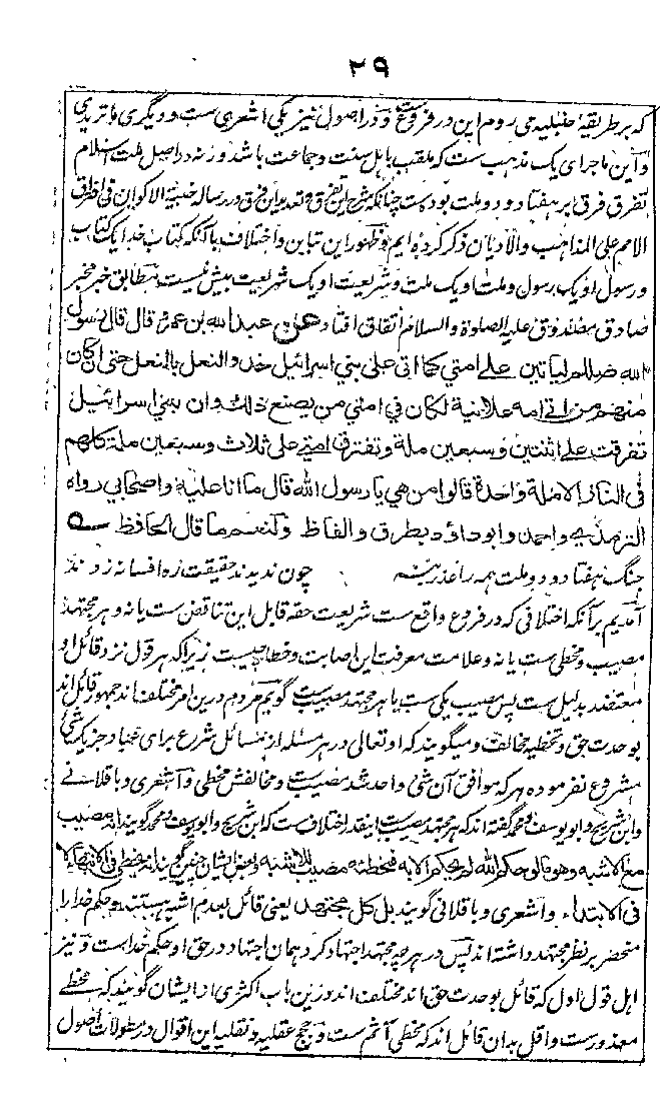 ۲۹
که بر طریقهٔ حنبلیه می روم این در فروع ست و در اصول نیز یکی اشعری ست و دیگری ماتریدی
و این ماجرای یک مذهب ست که ملقب باهل سنت و جماعت باشد ورنه در اصل ملت اسلام
تفرق فرق بر هفتاد و دو ملت بوده ست چنانکه شرح این فرق و تعدید این فرق در رساله خبیئة الاکوان فی افتراق
الامم علی المذاهب والادیان ذکر کرده ایم و ظهور این تباین و اختلاف باآنکه کتاب خدا یک کتاب
و رسول او یک رسول و ملت او یک ملت و شریعت او یک شریعت بیش نیست مطابق خبر مخبر
صادق مصدوق علیه الصلوة والسلام اتفاق افتاد عن عبد الله بن عمرو قال قال رسول
الله صللم لیاتین علی امتی کما اتی علی بنی اسرائیل حذو النعل بالنعل حتی ان کان
منهم من اتی امه علانیة لکان فی امتی من یصنع ذلک وان بنی اسرائیل
تفرقت علی اثنتین وسبعین ملة وتفترق امتی علی ثلاث وسبعین ملة کلهم
فی النار الا ملة واحدة قالوا من هی یا رسول الله قال ما انا علیه واصحابی رواه
الترمذی واحمد وابوداؤد بطرق والفاظ ولنعم ما قال الحافظ
جنگ هفتاد و دو ملت همه را عذر بنه چون ندیدند حقیقت ره افسانه زدند
آمدیم برآنکه اختلافی که در فروع واقع ست شریعت حقه قابل این تناقض ست یا نه و هر مجتهد
مصیب و مخطی ست یا نه و علامت معرفت این اصابت و خطا چیست زیراکه هر قول نزد قائل او
معتضد بدلیل ست پس مصیب یکی ست یا هر مجتهد مصیب ست گویم مردم درین امر مختلف اند جمهور قائل اند
بوحدت حق و تخطیه مخالف و میگویند که او تعالی در هر مسئله از مسائل شرع برای عباد جز یک شئ
مشروع نفرموده هر که موافق آن شئ واحد شد مصیب ست و مخالفش مخطی و اشعری و باقلانی
و ابن شریح و ابو یوسف و محمد گفته اند که هر مجتهد مصیب ست اینقدر اختلاف ست که ابن شریح و ابو یوسف و محمد گویند انه مصیب
مع الاشبه وهو ما لو حکم الله لم یحکم الا به فمخطئه مصیب للاشبه و بعض ایشان چنین گویند انه مخطی فی الانتهاء لا
فی الابتداء و اشعری و باقلانی گویند بل کل مجتهد یعنی قائل بعدم اشبه هستند و حکم خدا را
منحصر بر نظر مجتهد داشته اند پس در هر چه مجتهد اجتهاد کرد همان اجتهاد در حق او حکم خداست و نیز
اهل قول اول که قائل بوحدت حق اند مختلف اند درین باب اکثری از ایشان گویند که مخطی
معذورست و اقل بدان قائل اند که مخطی آثم ست و حجج عقلیه و نقلیه این اقوال در مطولات اصول